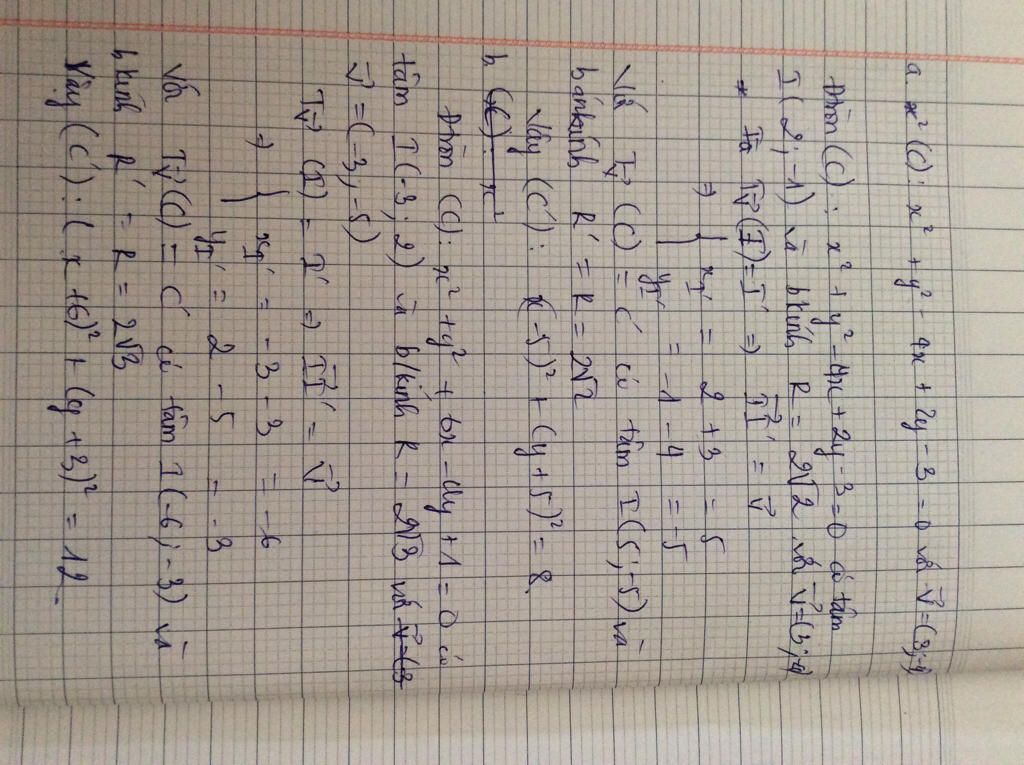 a x² (C): x² + y² - 4x + 2y - 3 = 0 và v⃗ = (3;-4)
Đtròn (C): x² + y² - 4x + 2y - 3 = 0 có tâm
I(2;-1) và bkính R = 2√2 và v⃗ = (3;-4)
* Ta Tv⃗(I) = I' => II'⃗ = v⃗
=> { xI' = 2 + 3 = 5
yI' = -1 - 4 = -5
Vả Tv⃗ (C) = C' có tâm I(5;-5) và
bánkính R' = R = 2√2
Vậy (C'): (x - 5)² + (y + 5)² = 8
b (C): x²
Đtròn (C): x² + y² + 6x - 4y + 1 = 0 có
tâm I(-3; 2) và b/kính R = 2√3 và v⃗ = (3
v⃗ = (-3; -5)
Tv⃗ (I) = I' => II'⃗ = v⃗
=> { xI' = -3 - 3 = -6
yI' = 2 - 5 = -3
Vả Tv⃗ (C) = C' có tâm I(-6; -3) và
bkính R' = R = 2√3
Vậy (C'): (x + 6)² + (y + 3)² = 12.